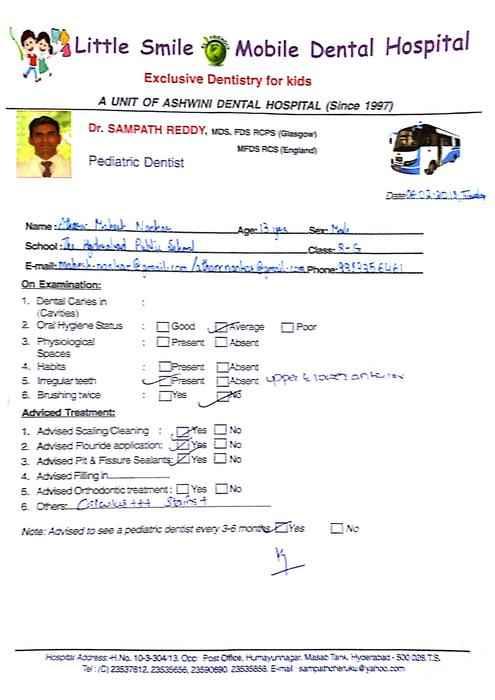 Little Smile Mobile Dental Hospital
Exclusive Dentistry for kids
A UNIT OF ASHWINI DENTAL HOSPITAL (Since 1997)
Dr. SAMPATH REDDY, MDS, FDS RCPS (Glasgow)
MFDS RCS (England)
Pediatric Dentist
Date:
Name: Age: 13 yrs Sex: Male
School: The Hyderabad Public School Class: 8-G
E-mail: Phone:
On Examination:
1. Dental Caries in :
(Cavities)
2. Oral Hygiene Status : Good Average Poor
3. Physiological : Present Absent
Spaces
4. Habits : Present Absent
5. Irregular teeth : Present Absent upper & lower anterior
6. Brushing twice : Yes No
Adviced Treatment:
1. Advised Scaling/Cleaning : Yes No
2. Advised Flouride application: Yes No
3. Advised Pit & Fissure Sealants: Yes No
4. Advised Filling in
5. Advised Orthodontic treatment : Yes No
6. Others: Calculus +++ Stains +
Note: Advised to see a pediatric dentist every 3-6 months Yes No
Hospital Address:-H.No. 10-3-304/13, Opp. Post Office, Humayunnagar, Masab Tank, Hyderabad - 500 028.T.S.
Tel : (C) 23537812, 23535656, 23590690, 23535858, E-mail : sampathcheruku@yahoo.com